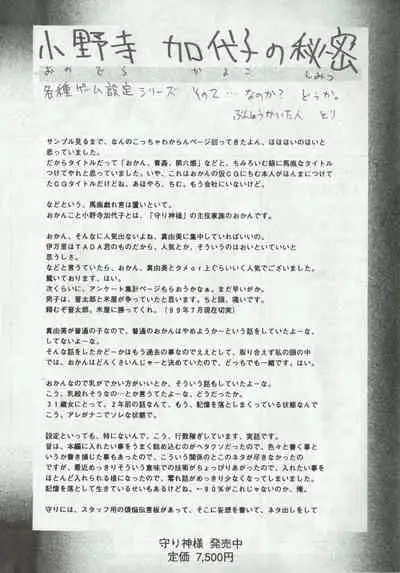 小野寺 加代子の秘密
おのでら かよこ しみつ
各種ゲーム設定シリーズ その7… なのか? どうか。
ぶんしょうかいた人 とり
サンプル見るまで、なんのこっちゃわからんページ回ってきたよん、ほほほいのほいと
思っていました。
だからタイトルだって「おかん、青姦、第六感」などと、ちみろいむ級に馬鹿なタイトル
つけてやれと思っていました。いや、これはおかんの仮CGにちむ本人がほんまにつけて
たCGタイトルだけどね、あほやろ、ちむ。もう会社にいないけど。
などという、馬鹿戯れ言は置いといて。
おかんこと小野寺加代子とは、「守り神様」の主役家族のおかんです。
おかん、そんなに人気出ないよね、真由美に集中していればいいの。
伊万里はTADA君のものだから、人気とか、そういうのはおいといていいと
思うしさ。
などと言っていたら、おかん、真由美とタメor上ぐらいいく人気でございました。
驚いております、はい。
次くらいに、アンケート集計ページもらおうかなぁ。まだ早いがか。
男子は、晋太郎と米屋が争っていたと思います。ちと頭、痛いです。
頼むぞ晋太郎。米屋に勝ってくれ。(99年7月現在切実)
真由美が普通の子なので、普通のおかんはやめようかーという話をしていたよーな、
してないよーな。
そんな話をしたかどーかはもう過去の事なのでええとして、取り合えず私の頭の中
では、おかんはどんくさいんじゃーと決めていたので、どっちでも一緒です。はい。
おかんなので乳がでかい方がいいとか、そういう話もしていたよーな。
こう、乳絞れそうなの…とか言うてたよーな、どうだったか。
31歳女にとって、2年前の話なんて、もう、記憶を落としまくっている状態なんで
こう、アレがナニでソレな状態で。
設定といっても、特にないんで、こう、行数稼ぎしています、実話です。
昔は、本編に入れたい事をうまく詰め込むのがヘタクソだったので、色々と書く事と
いうか書き損じた事もあったので、こういう関係のとこのネタが尽きなかったの
ですが、最近めっきりそういう意味での技術がちょっぴりあがったので、入れたい事を
ほとんど入れられる様になったので、零れ話がめっきり少なくなってしまいました。
記憶を落として生きているせいもあるけどね。←90%がこれじゃないのか、俺。
守りには、スタッフ用の煩悩伝言板があって、そこに妄想を書いて、ネタ出しをして
守り神様 発売中
定価 7,500円